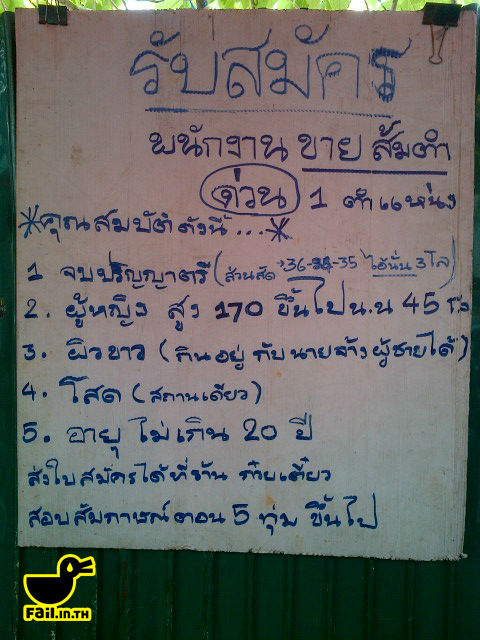 รับสมัคร
พนักงาน ขาย ส้มตำ
ด่วน 1 ตำแหน่ง
*คุณสมบัติ ดังนี้ ...*
1 จบปริญญาตรี (ส่วนสัด 36-35 ไอ้นั่น 3 โล)
2. ผู้หญิง สูง 170 ขึ้นไป น.น 45 โล
3. ผิวขาว (กินอยู่ กับ นายจ้าง ผู้ชายได้)
4. โสด (สถานเดียว)
5. อายุ ไม่เกิน 20 ปี
ส่งใบสมัครได้ที่ร้าน ก๋วยเตี๋ยว
สอบสัมภาษณ์ตอน 5 ทุ่ม ขึ้นไป
FAiL.in.TH